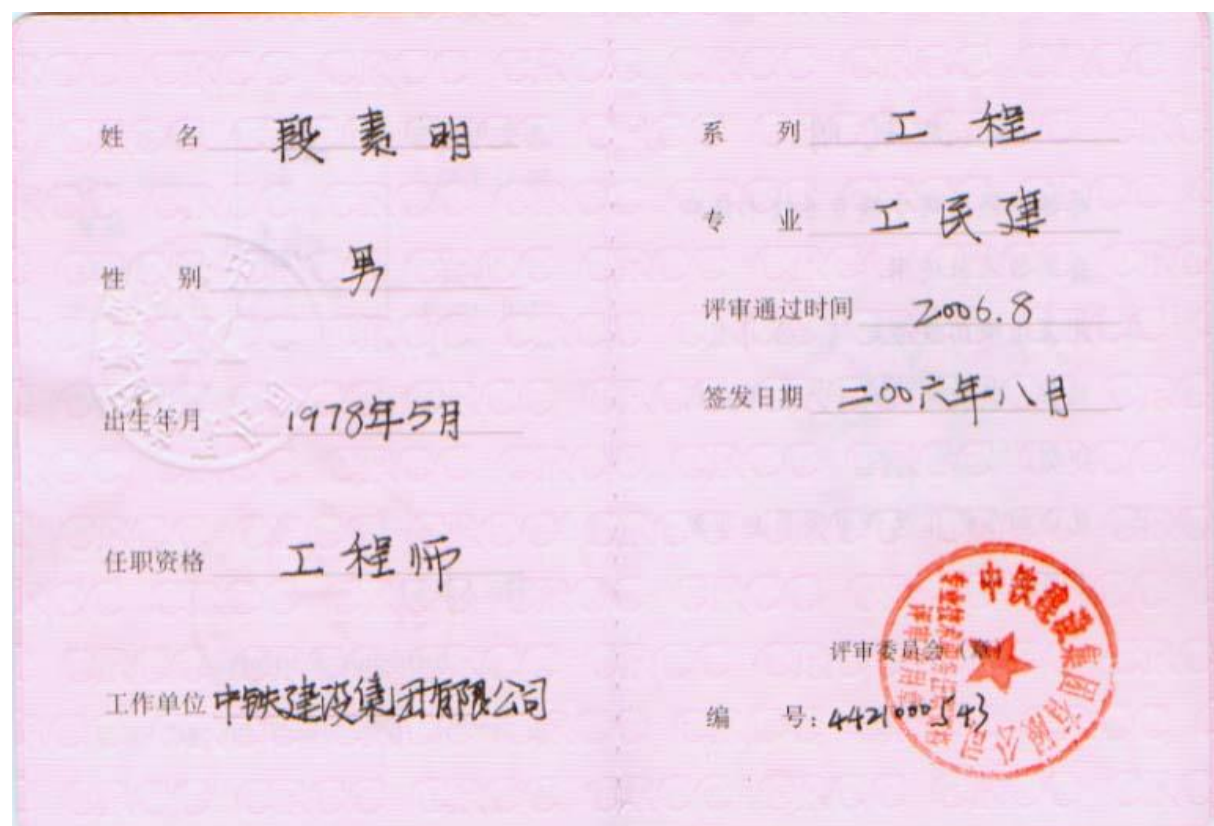 姓 名 段素明
性 别 男
出生年月 1978年5月
任职资格 工程师
工作单位 中铁建设集团有限公司
系 列 工程
专 业 工民建
评审通过时间 2006.8
签发日期 二00六年八月
评审委员会(章)
编 号: 4421000543
中铁建设集团有限公司
专业技术职务任职资格
评审专用章